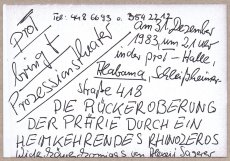 Tel: 448 6693 o. 3542217
prot
bringt
Prozessionstheater
am 31. Dezember
1983 um 21 uhr
in der prot-Halle,
Alabama, Schleißheimer-
straße 418
DIE RÜCKEROBERUNG
DER PRÄRIE DURCH EIN
HEIMKEHRENDES RHINOZEROS
von Alexeij Sagerer